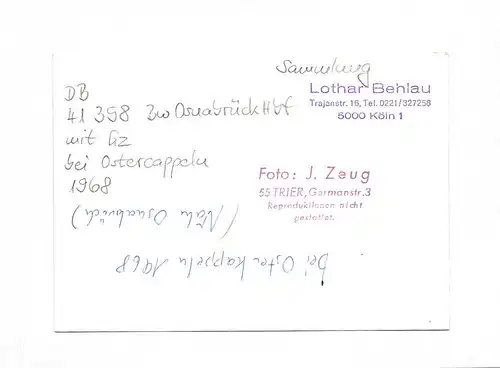 Sammlung
Lothar Behlau
Trajanstr. 16, Tel. 0221/327258
5000 Köln 1
DB
41 358 zw Osnabrück Hbf
mit Gz
bei Ostercappeln
1968
Foto: J. Zeug
55 TRIER, Germanstr. 3
Reproduktionen nicht
gestattet.
(Nähe Osnabrück)
bei Osterkappeln 1968